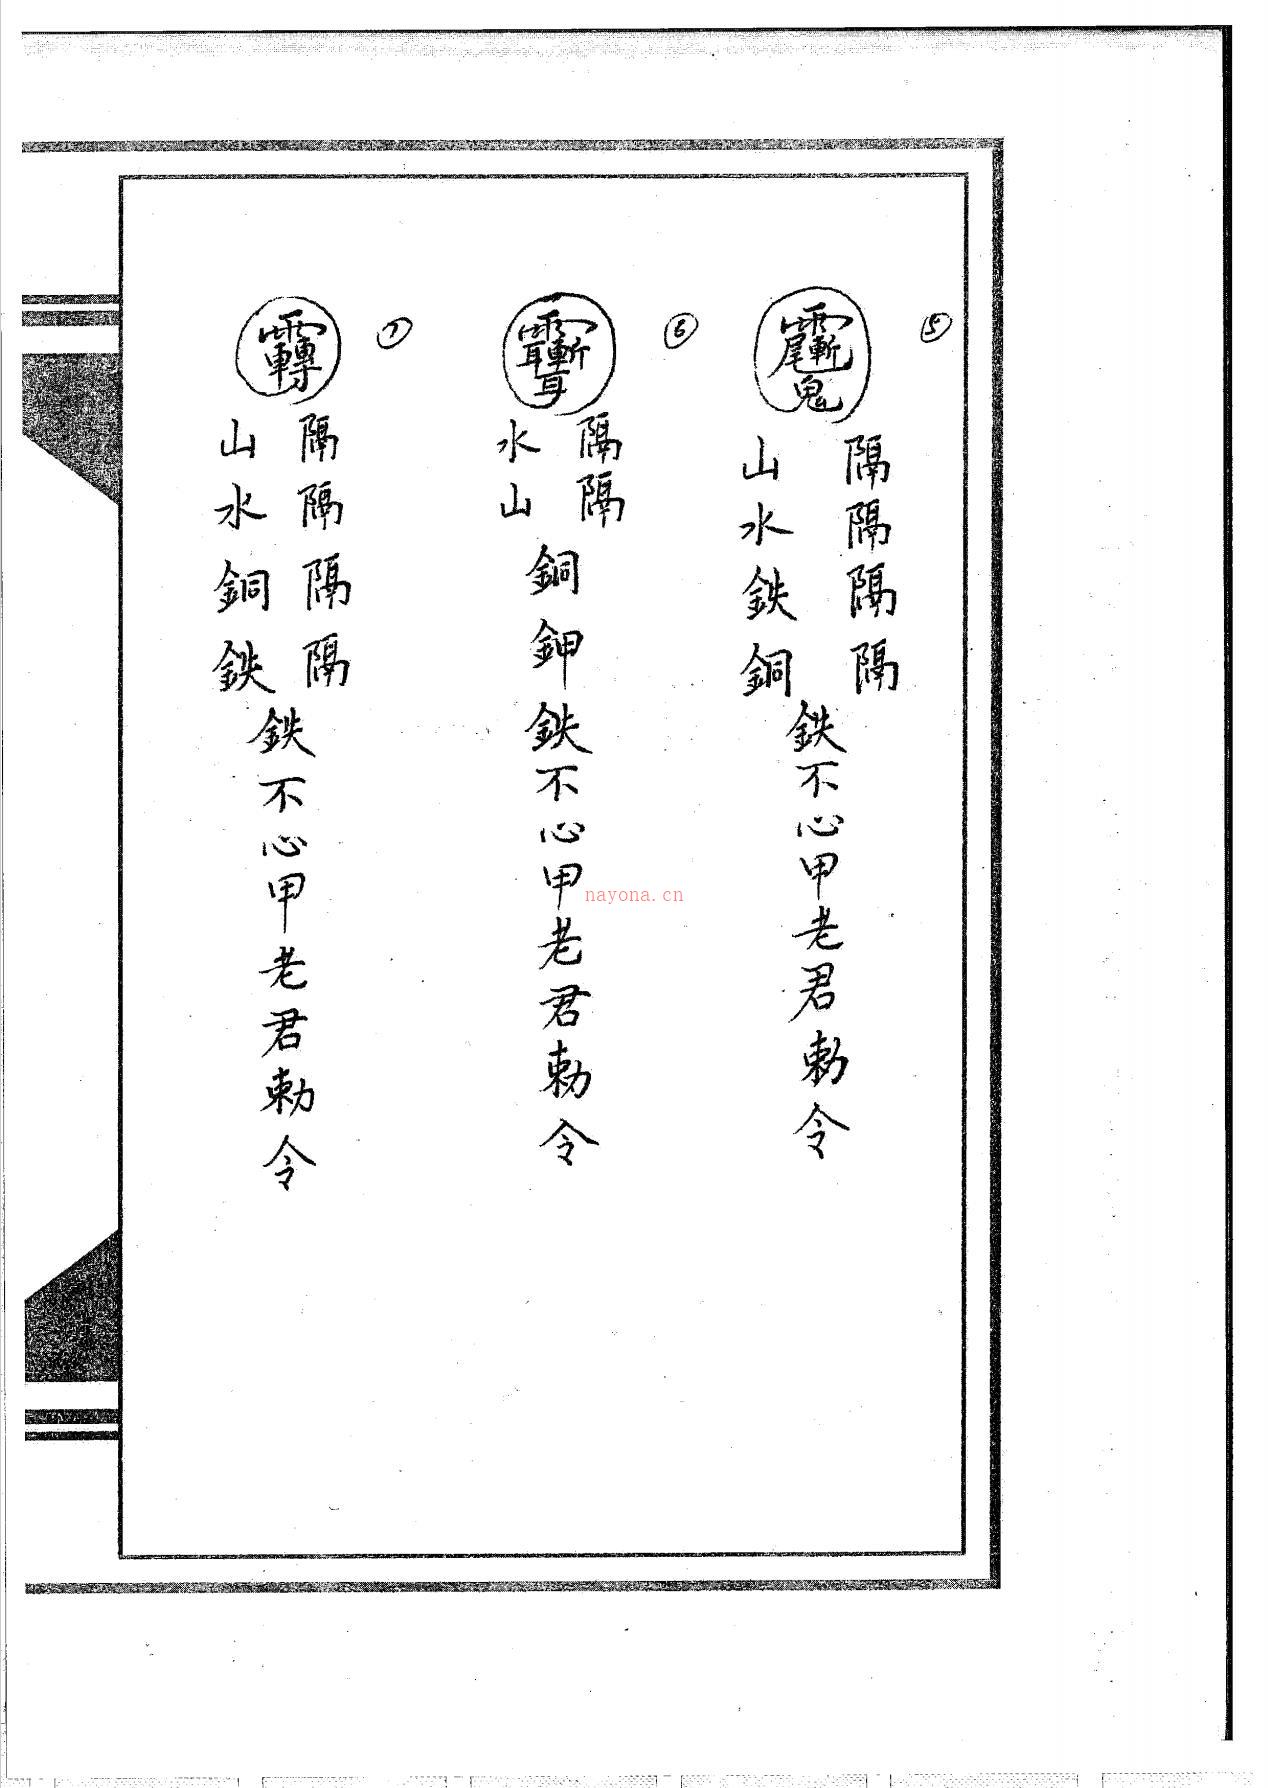 ⑤
隔隔隔隔
山水鉄銅
鉄不心甲老君勅令
⑥
隔隔
水山
銅鉀鉄不心甲老君勅令
⑦
隔隔隔隔
山水銅鉄
鉄不心甲老君勅令
nayona.cn